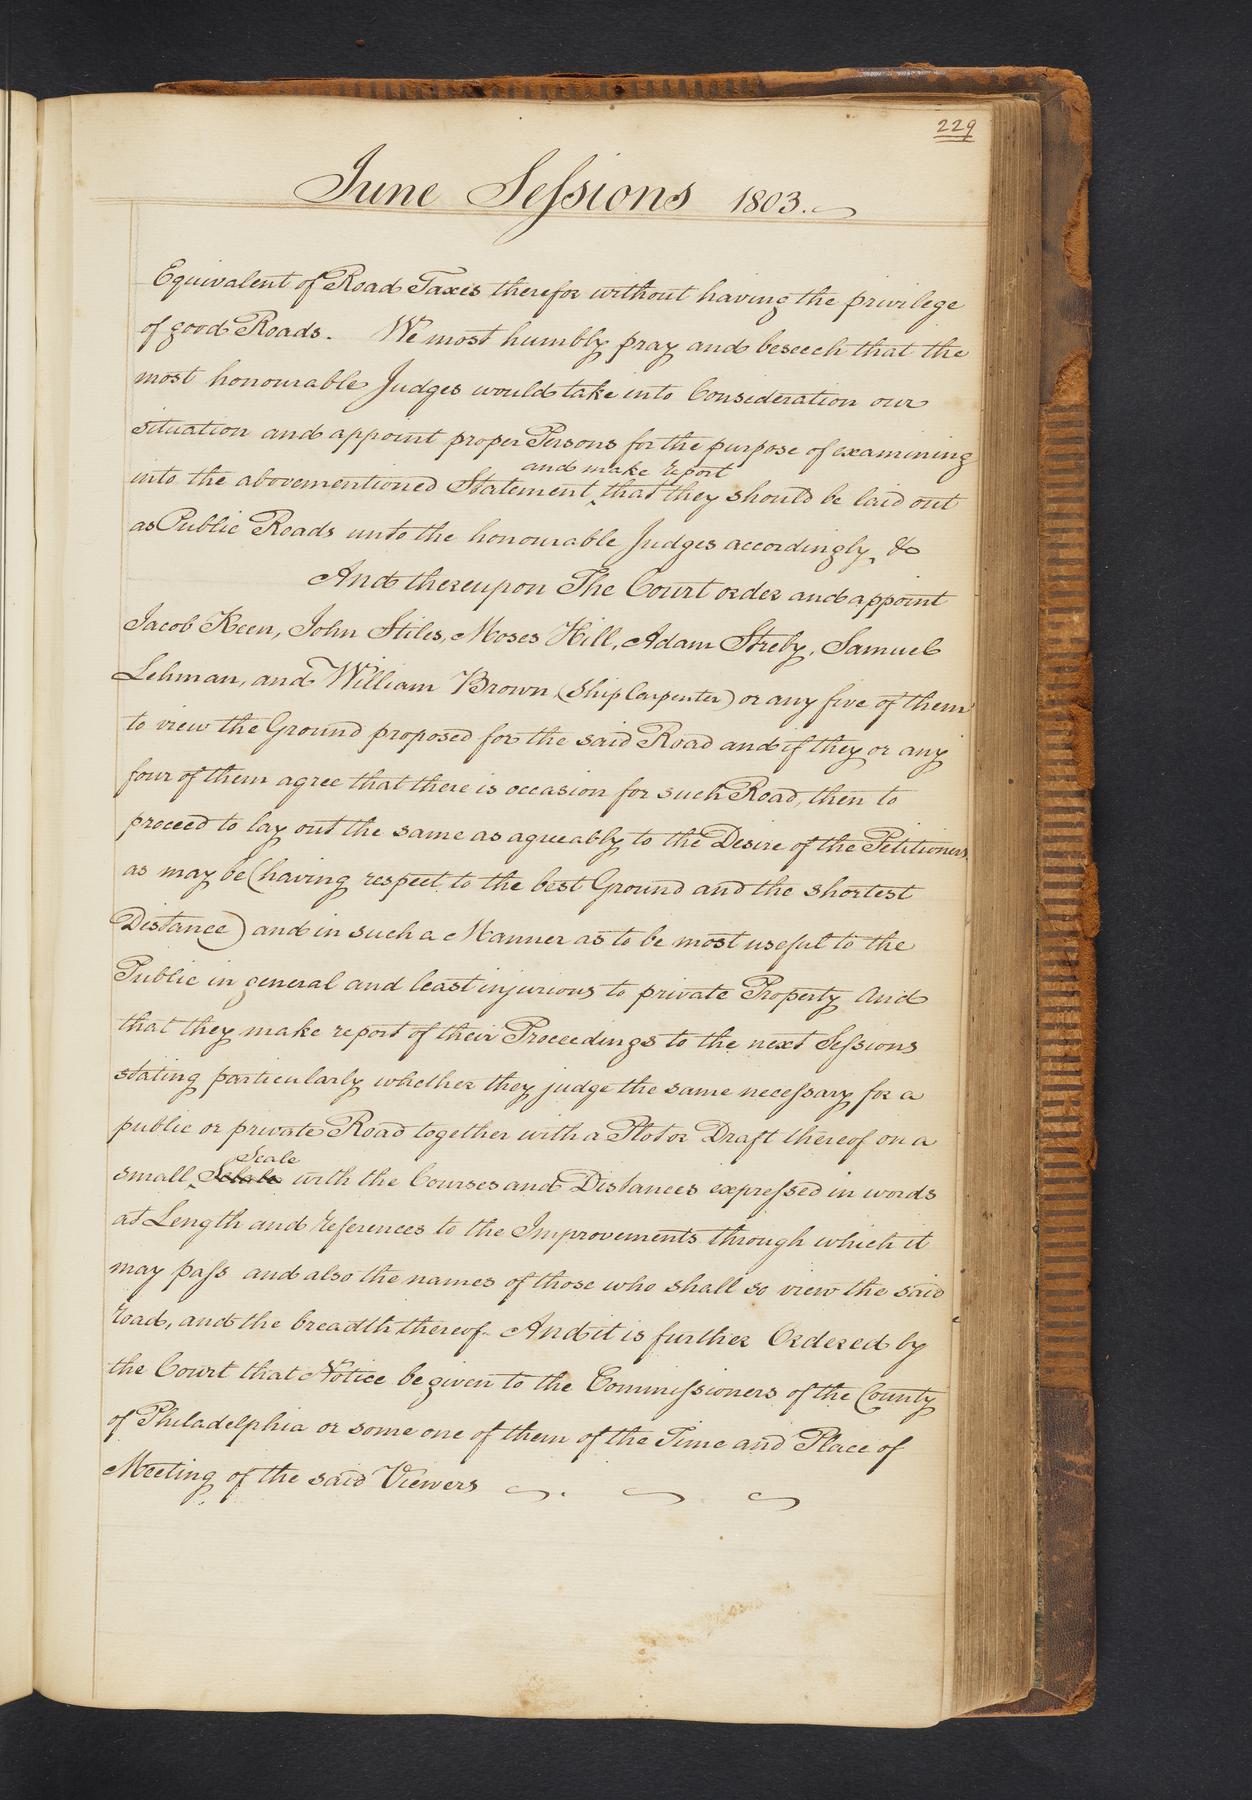 229
June Sessions 1803.
Equivalent of Road Taxes therefor without having the privilege
of good Roads. We most humbly pray and beseech that the
most honourable Judges would take into Consideration our
situation and appoint proper Persons for the purpose of examining
and make report
into the abovementioned Statement ‸ that they should be laid out
as Public Roads unto the honourable Judges accordingly, &c
And thereupon The Court order and appoint
Jacob Keen, John Stiles, Moses Hill, Adam Streby, Samuel
Lehman, and William Brown (Ship Carpenter) or any five of them
to view the Ground proposed for the said Road and if they or any
four of them agree that there is occasion for such Road, then to
proceed to lay out the same as agreeably to the Desire of the Petitioners
as may be (having respect to the best Ground and the shortest
Distance) and in such a Manner as to be most useful to the
Public in general and least injurious to private Property And
that they make report of their Proceedings to the next Sessions
stating particularly whether they judge the same necessary for a
public or private Road together with a Plot or Draft thereof on a
Scale
small ‸ with the Courses and Distances expressed in words
at Length and references to the Improvements through which it
may pass and also the names of those who shall so view the said
road, and the breadth thereof. And it is further Ordered by
the Court that Notice be given to the Commissioners of the County
of Philadelphia or some one of them of the Time and Place of
Meeting of the said Viewers